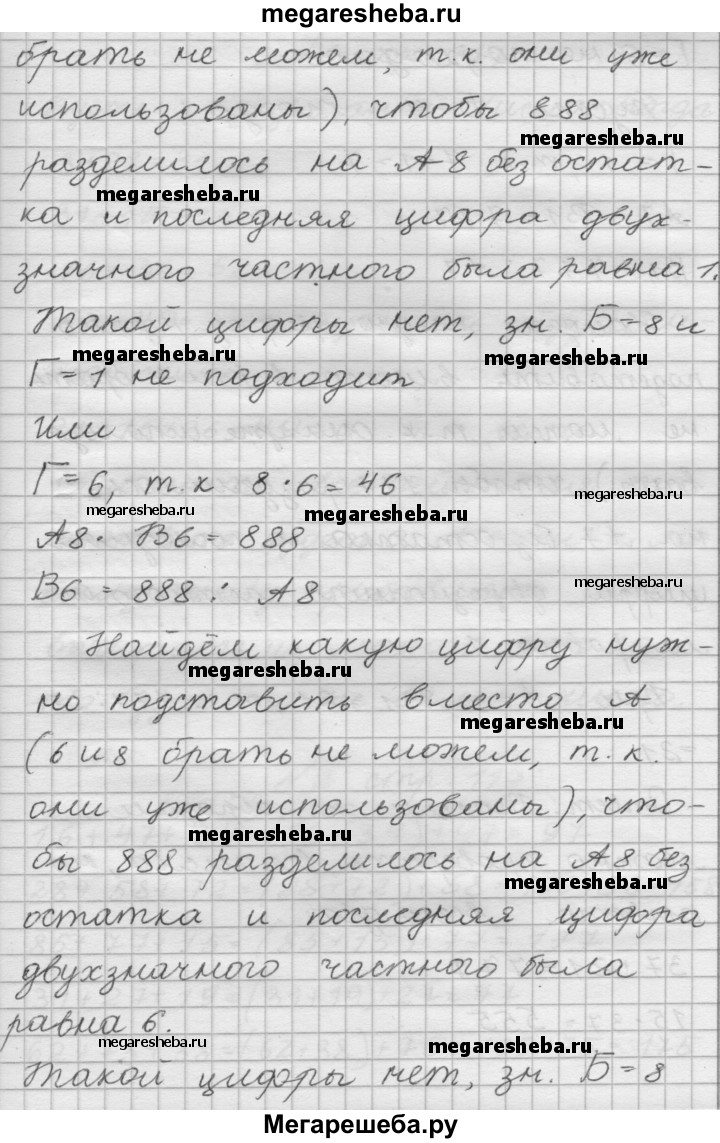 megaresheba.ru
брать не можем, т.к. они уже
использованы), чтобы 888
megaresheba.ru
разделилось на А8 без остат-
megaresheba.ru
ка и последняя цифра двух-
значного частного была равна 1.
Такой цифры нет, зн. Б=8 и
megaresheba.ru
megaresheba.ru
Г=1 не подходит
Или
Г=6, т.к 8·6=46
megaresheba.ru
megaresheba.ru
megaresheba.ru
А8· В6=888
В6=888:А8
megaresheba.ru
Найдём какую цифру нуж-
megaresheba.ru
но подставить вместо А
megaresheba.ru
(6 и 8 брать не можем, т.к.
они уже использованы), что-
megaresheba.ru
бы 888 разделилось на А8 без
megaresheba.ru
остатка и последняя цифра
двухзначного частного была
равна 6.
megaresheba.ru
megaresheba.ru
Такой цифры нет, зн. Б=8
Мегарешеба.ру